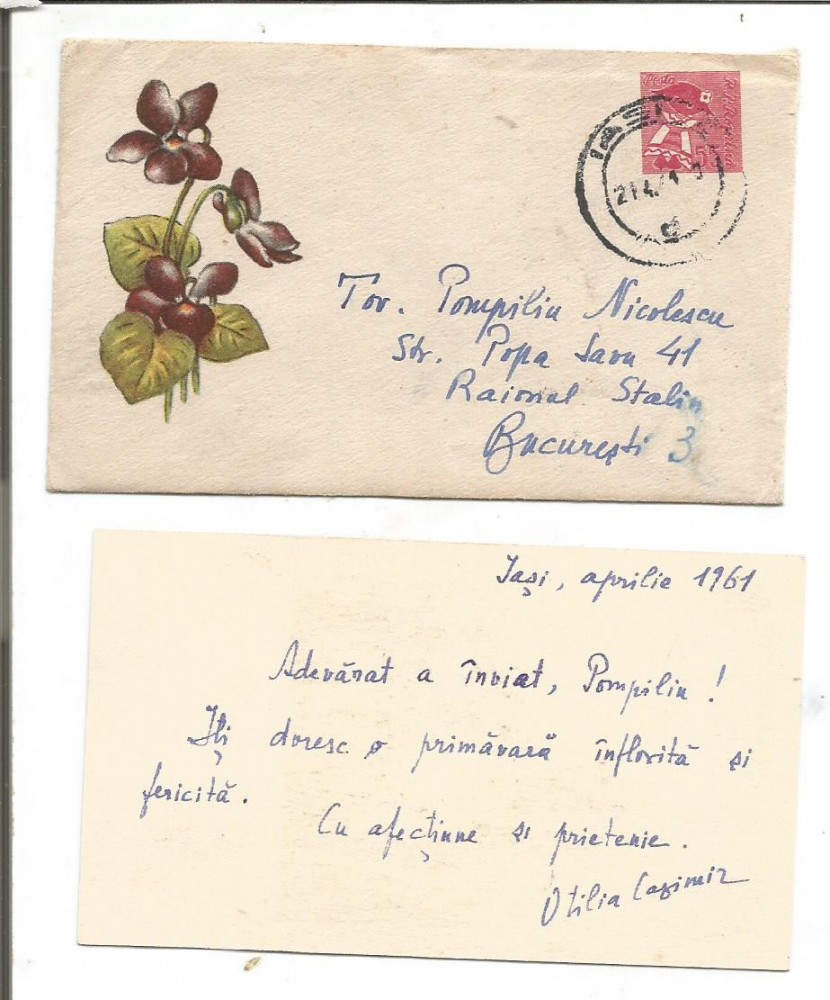 IAȘI
21.4.61
Tov. Pompiliu Nicolescu
Str. Popa Savu 41
Raionul Stalin
București 3
Iași, aprilie 1961
Adevărat a înviat, Pompiliu!
Îți doresc o primăvară înflorită și
fericită.
Cu afecțiune și prietenie.
Otilia Cazimir